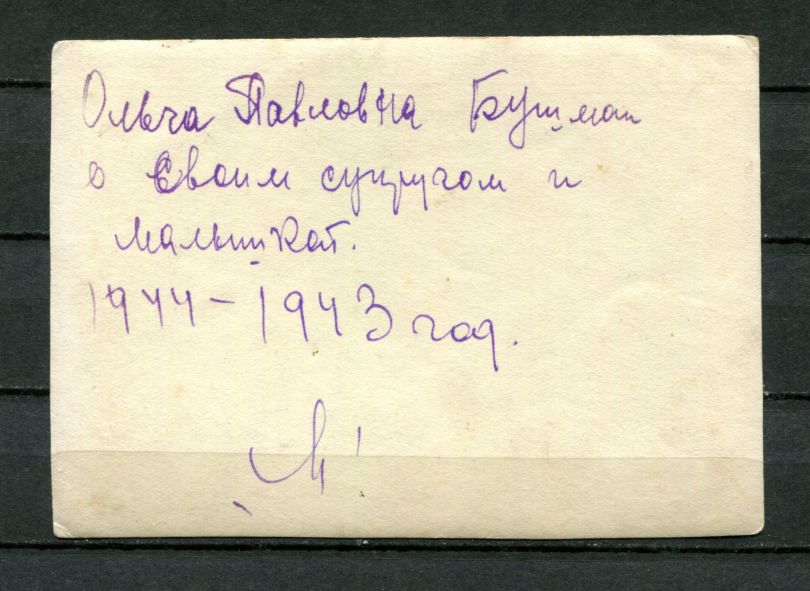 Ольга Павловна Бушман
с своим супругом и
малышкой.
1944-1943 год.